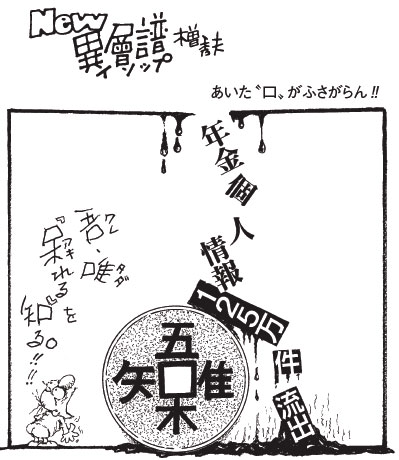 New
異層譜
イソップ
あいた〝口〟がふさがらん!!
年金個人情報
125万
件流出
吾、唯
ワレ タダ
『呆れる』を
アキ
知る。!!
五
矢口隹
木